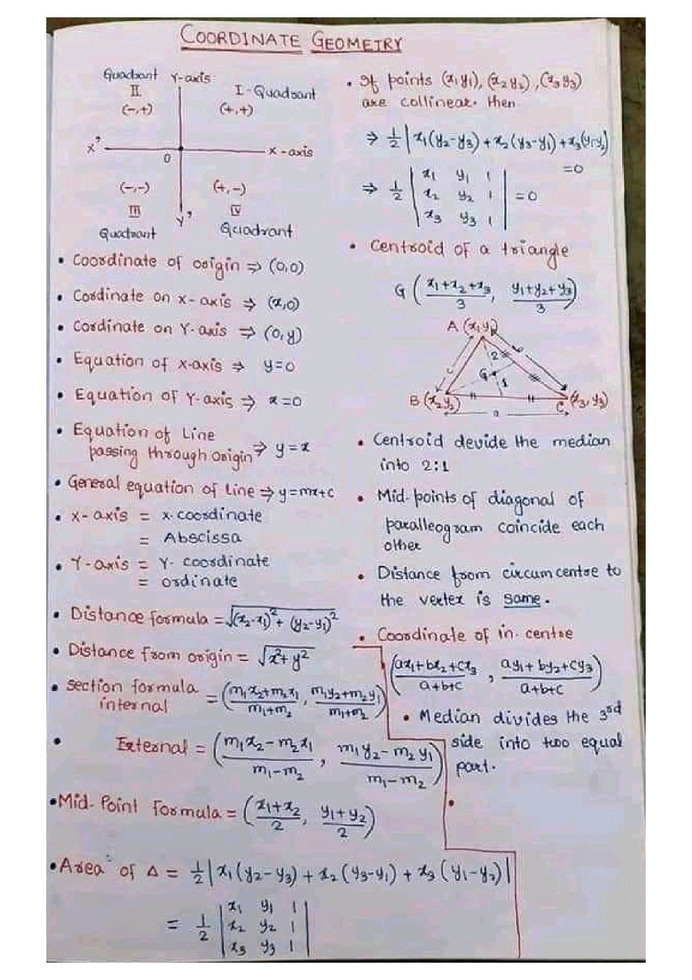 COORDINATE GEOMETRY
Quadrant
II
(-,+)
Y-axis
I-Quadrant
(+,+)
X'
O
X-axis
(-,-)
III
Quadrant
Y'
(+,-)
IV
Quadrant
• Coordinate of origin ⇒ (0,0)
• Cordinate on x-axis ⇒ (x,0)
• Cordinate on Y-axis ⇒ (0,y)
• Equation of x-axis ⇒ y=0
• Equation of Y-axis ⇒ x=0
• Equation of Line
passing through origin ⇒ y=x
• General equation of line ⇒ y=mx+c
• x-axis = x-coordinate
= Abscissa
• Y-axis = Y-coordinate
= ordinate
• Distance formula = √(x₂-x₁)²+(y₂-y₁)²
• Distance from origin = √x²+y²
• Section formula
internal = (m₁x₂+m₂x₁/m₁+m₂, m₁y₂+m₂y₁/m₁+m₂)
• External = (m₁x₂-m₂x₁/m₁-m₂, m₁y₂-m₂y₁/m₁-m₂)
• Mid-Point formula = (x₁+x₂/2, y₁+y₂/2)
• Area of Δ = ½|x₁(y₂-y₃)+x₂(y₃-y₁)+x₃(y₁-y₂)|
= ½ | x₁ y₁ 1
x₂ y₂ 1
x₃ y₃ 1 |
• If points (x₁y₁), (x₂y₂), (x₃y₃)
are collinear then
⇒ ½|x₁(y₂-y₃)+x₂(y₃-y₁)+x₃(y₁-y₂)
=0
⇒ ½ | x₁ y₁ 1
x₂ y₂ 1
x₃ y₃ 1 | =0
• Centroid of a triangle
G (x₁+x₂+x₃/3, y₁+y₂+y₃/3)
A (x₁y₁)
b
c
2
G
1
B (x₂y₂)
C (x₃,y₃)
a
• Centroid devide the median
into 2:1
• Mid-points of diagonal of
paralleogram coincide each
other
• Distance from circumcentre to
the vertex is same.
• Coordinate of in-centre
(ax₁+bx₂+cx₃/a+b+c, ay₁+by₂+cy₃/a+b+c)
• Median divides the 3rd
side into two equal
part.